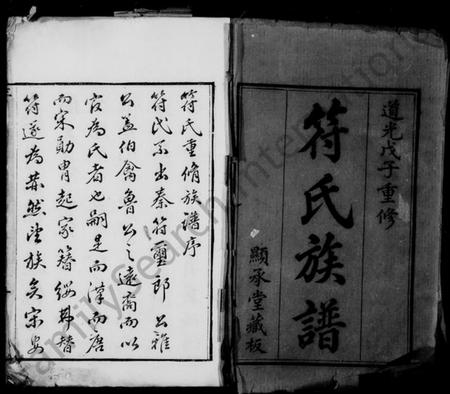 道光戊子重修
符氏族譜
顯承堂藏板
符氏重脩族譜序
符氏系出秦符璽郎公雅
公蓋伯禽魯公之遠裔而以
官為氏者也嗣是而漢而唐
而宋勛胄起家簪纓弗替
符遂為赫然望族矣宋安
FamilySearch International